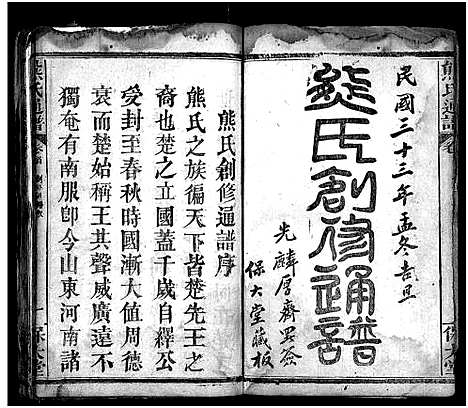 熊氏通譜
民國三十三年孟冬吉旦
熊氏創修通譜
光麟厚齋署簽
保大堂藏板
保大堂
熊氏創修通譜序
熊氏之族徧天下皆楚先王之
裔也楚之立國蓋千歲自繹公
受封至春秋時國漸大值周德
衰而楚始稱王其聲威廣遠不
獨奄有南服卽今山東河南諸
熊氏通譜
一 保大堂